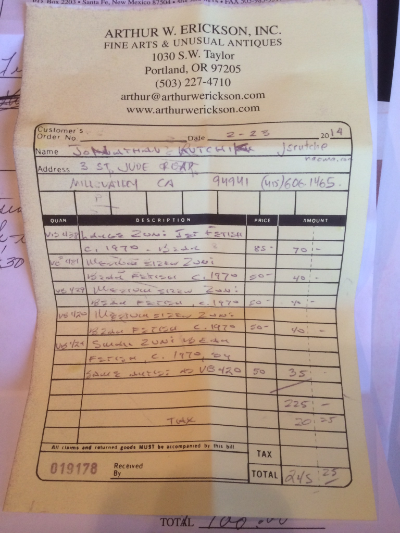 Box 2203 • Santa Fe, New Mexico 87504 •
ARTHUR W. ERICKSON, INC.
FINE ARTS & UNUSUAL ANTIQUES
1030 S.W. Taylor
Portland, OR 97205
(503) 227-4710
arthur@arthurwerickson.com
www.arthurwerickson.com
Customer's
Order No. Date 2-23 2014
Name JONATHAN
Address 3 ST. JUDE
MILL VALLEY CA 94941 (415) 606.1465
QUAN. DESCRIPTION PRICE AMOUNT
LARGE ZUNI JET FETISH
C. 1970 - 85- 70 -
MEDIUM SIZED ZUNI
FETISH C. 1970 50- 40 -
MEDIUM SIZED ZUNI
FETISH, C. 1970 50- 40 -
MEDIUM SIZED ZUNI
FETISH C. 1970 50- 40 -
SMALL ZUNI
FETISH, C. 1970, BY
SAME ARTIST AS VB 420 50 35 -
225 -
TAX 20 25
All claims and returned goods MUST be accompanied by this bill
TAX
019178 Received By TOTAL 245 25
TOTAL 100.00